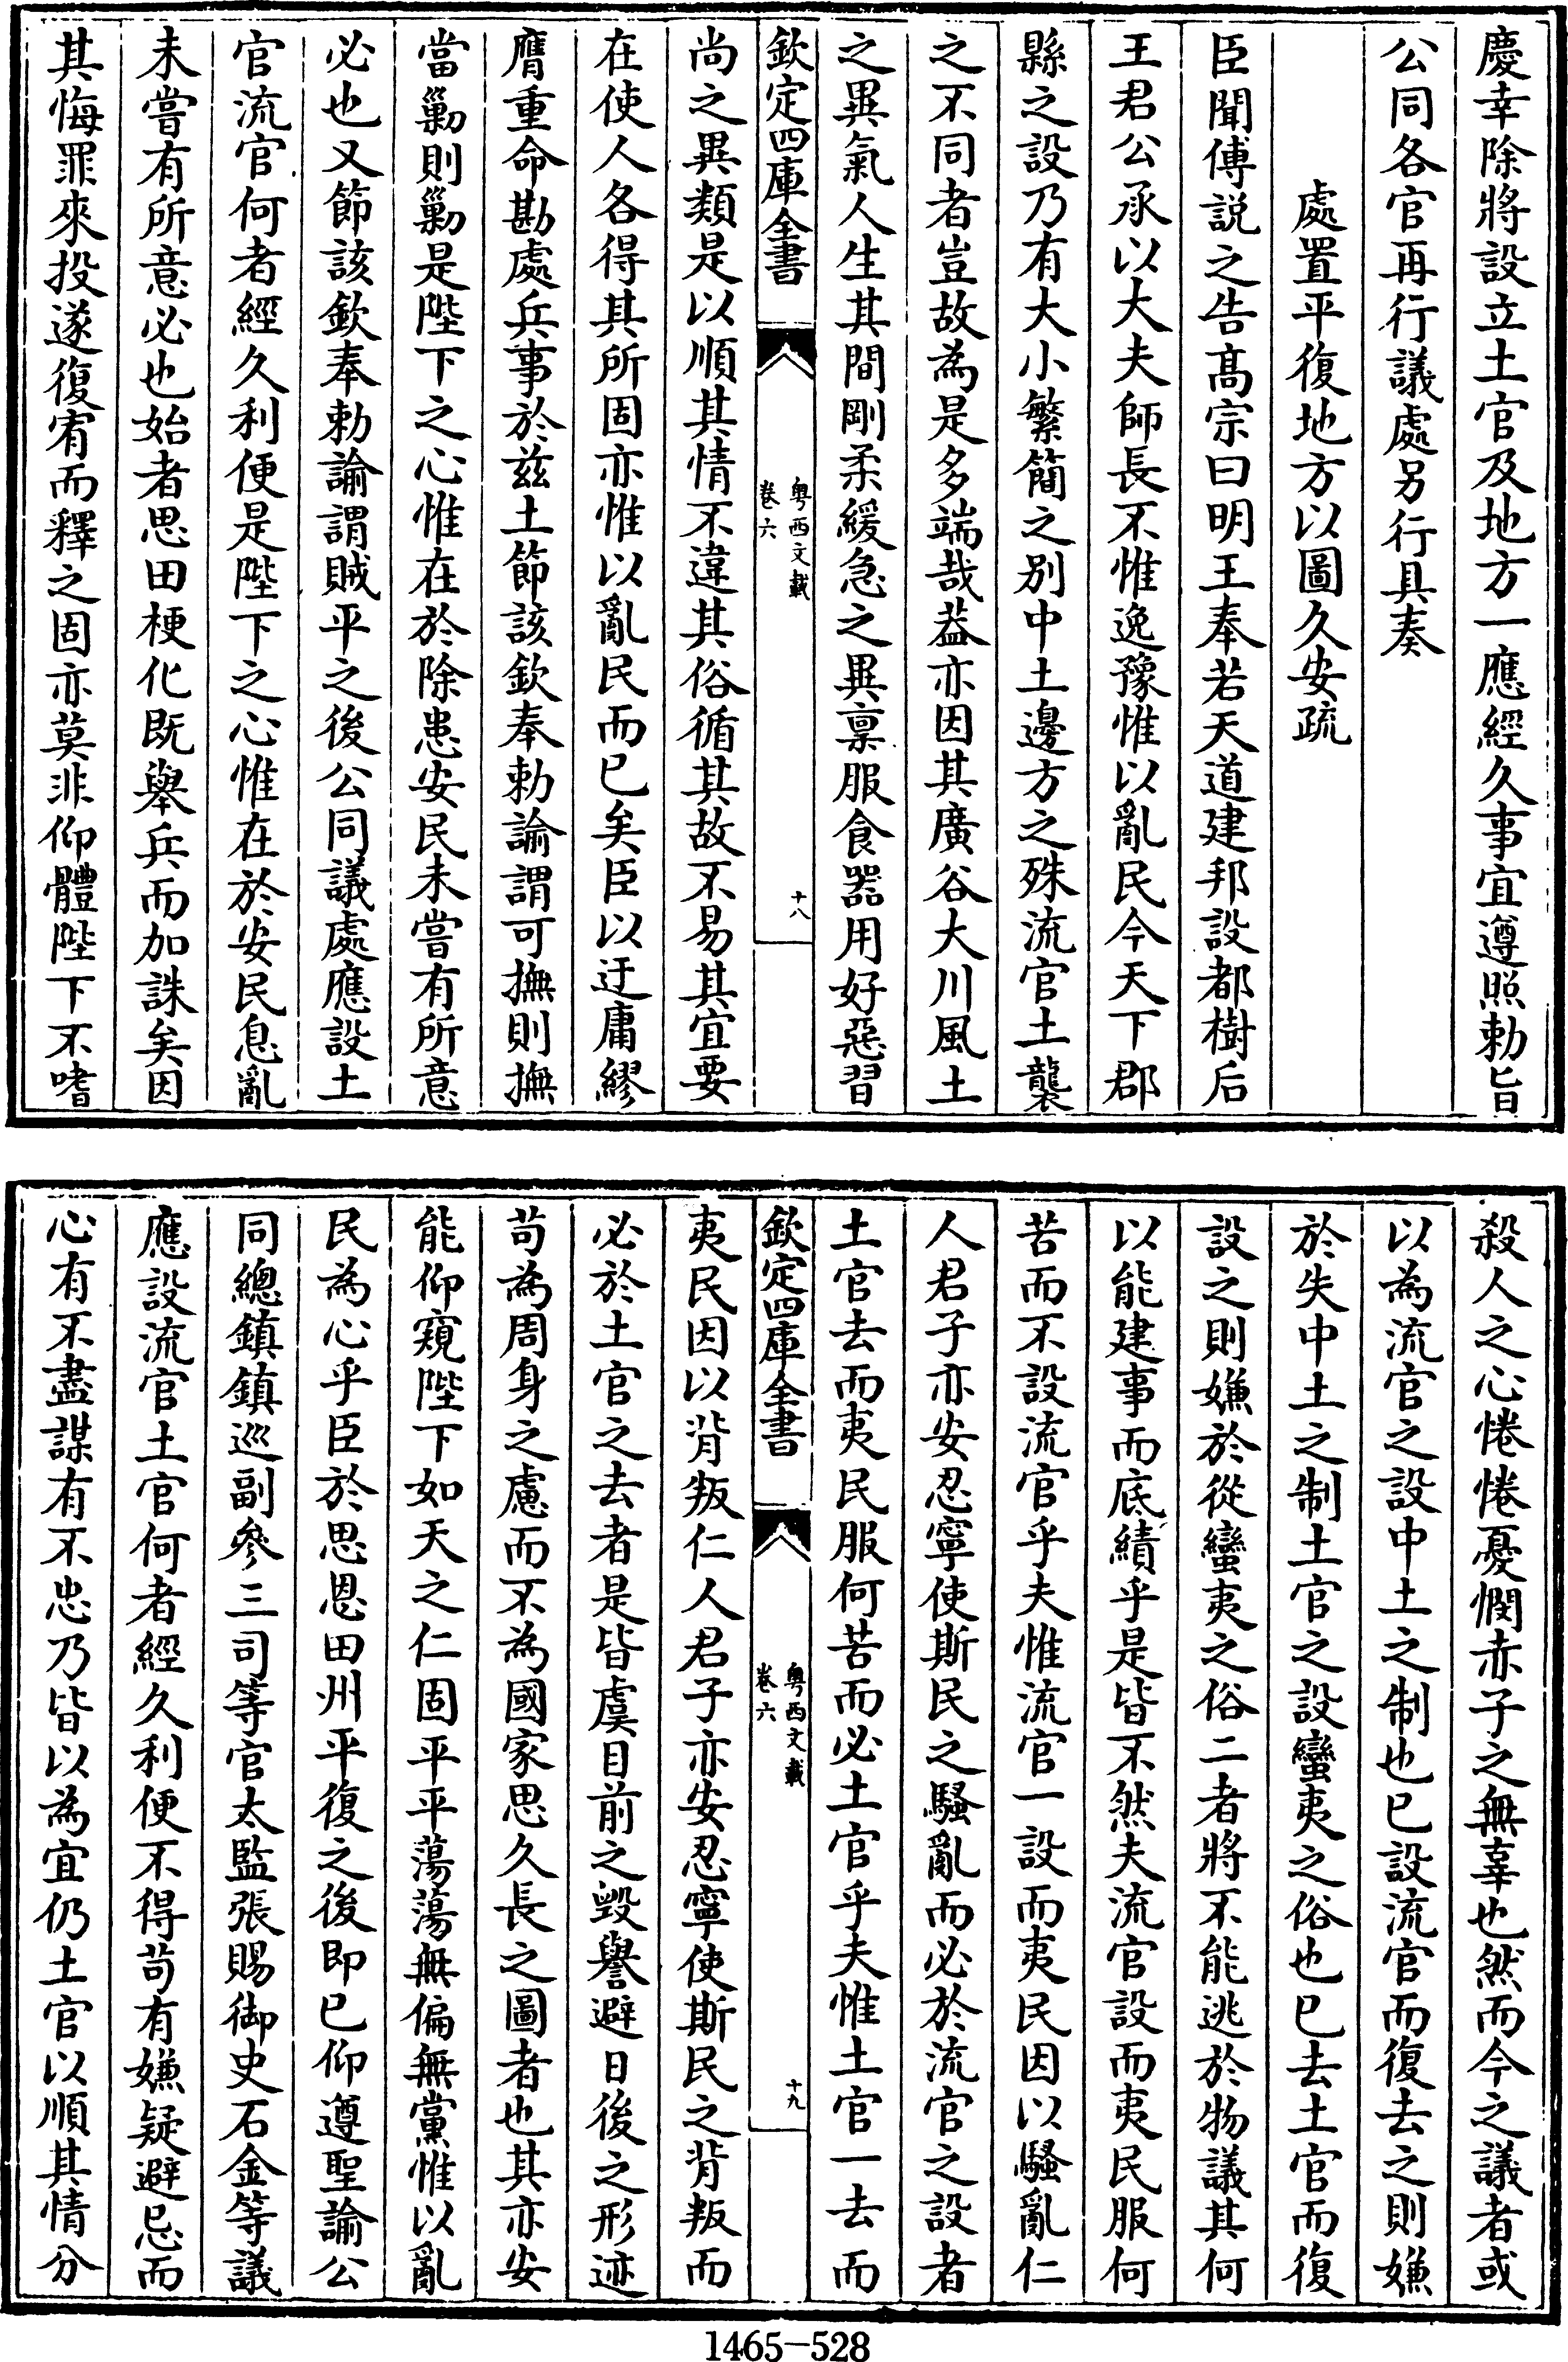 慶幸除將設立土官及地方一應經久事宜遵照勅旨
公同各官再行議處另行具奏
處置平復地方以圖久安疏
臣聞傅説之告髙宗曰明王奉若天道建邦設都樹后
王君公承以大夫師長不惟逸豫惟以亂民今天下郡
縣之設乃有大小繁簡之别中土邊方之殊流官土襲
之不同者豈故為是多端哉葢亦因其廣谷大川風土
之異氣人生其間剛柔緩急之異稟服食器用好惡習
欽定四庫全書
粤西文載
卷六
十八
尚之異類是以順其情不違其俗循其故不易其宜要
在使人各得其所固亦惟以亂民而已矣臣以迂庸繆
膺重命勘處兵事於兹土節該欽奉勅諭謂可撫則撫
當勦則勦是陛下之心惟在於除患安民未嘗有所意
必也又節該欽奉勅諭謂賊平之後公同議處應設土
官流官何者經久利便是陛下之心惟在於安民息亂
未嘗有所意必也始者思田梗化既舉兵而加誅矣因
其悔罪來投遂復宥而釋之固亦莫非仰體陛下不嗜
殺人之心惓惓憂憫赤子之無辜也然而今之議者或
以為流官之設中土之制也已設流官而復去之則嫌
於失中土之制土官之設蠻夷之俗也已去土官而復
設之則嫌於從蠻夷之俗二者將不能逃於物議其何
以能建事而底績乎是皆不然夫流官設而夷民服何
苦而不設流官乎夫惟流官一設而夷民因以騷亂仁
人君子亦安忍寧使斯民之騷亂而必於流官之設者
土官去而夷民服何苦而必土官乎夫惟土官一去而
欽定四庫全書
粤西文載
卷六
十九
夷民因以背叛仁人君子亦安忍寧使斯民之背叛而
必於土官之去者是皆虞目前之毀譽避日後之形迹
苟為周身之慮而不為國家思久長之圖者也其亦安
能仰窺陛下如天之仁固平平蕩蕩無偏無黨惟以亂
民為心乎臣於思恩田州平復之後即已仰遵聖諭公
同總鎮鎮巡副參三司等官太監張賜御史石金等議
應設流官土官何者經久利便不得苟有嫌疑避忌而
心有不盡謀有不忠乃皆以為宜仍土官以順其情分
1465-528